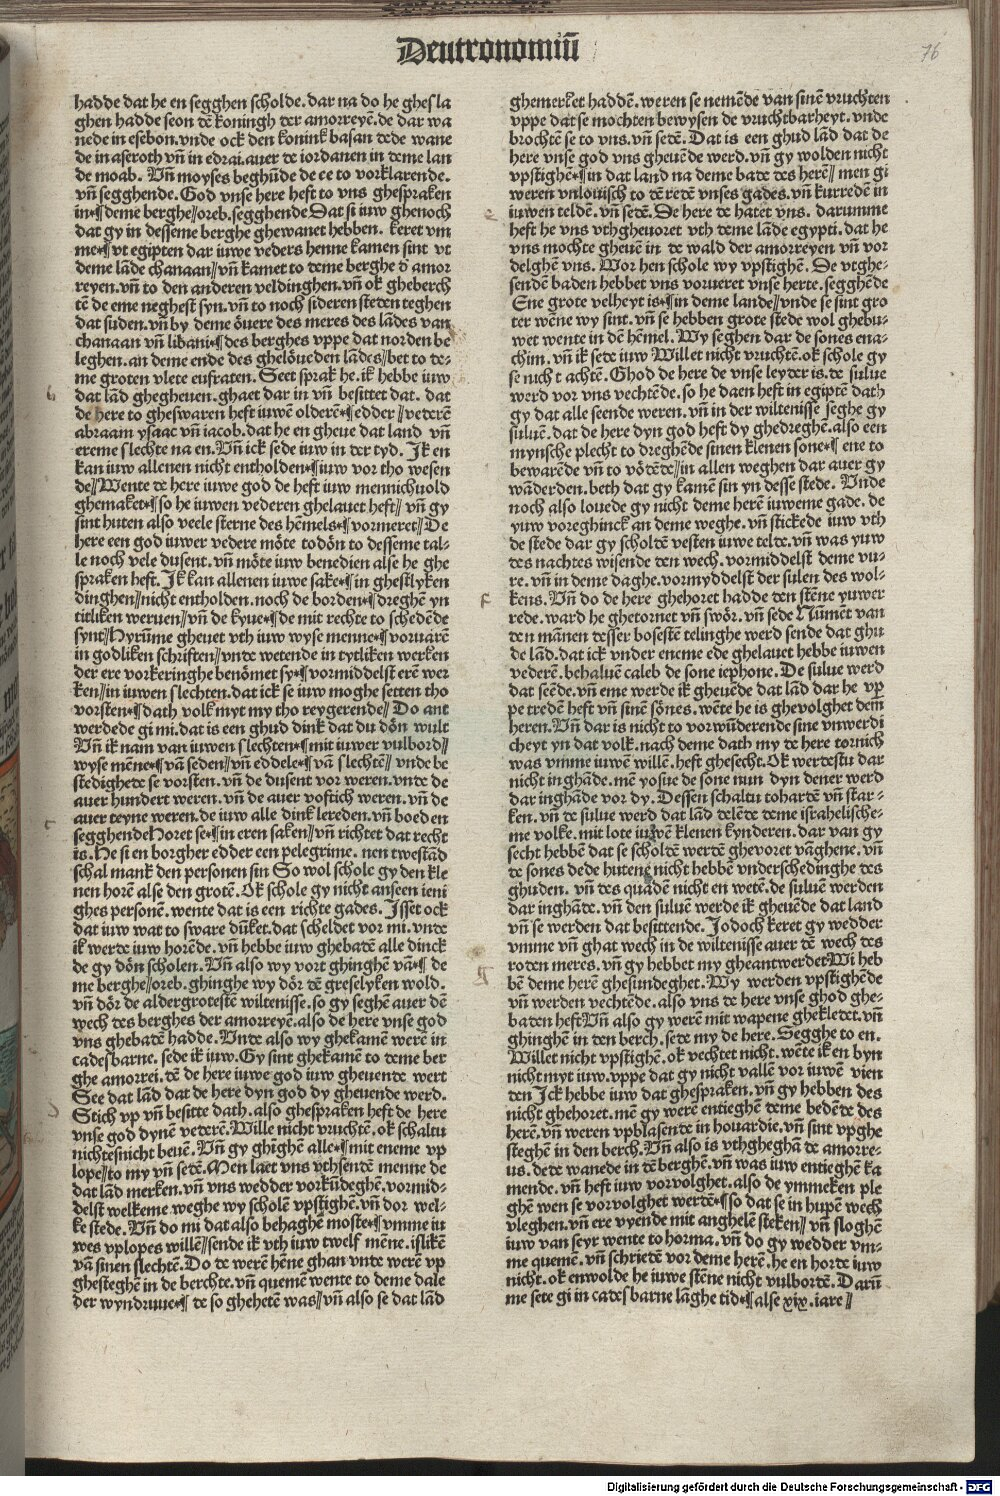 Deutronomiū
76
hadde dat he en segghen scholde. dar na do he ghesla
ghen hadde seon dē koningh der amorreyē. de dar wa
nede in esebon. vnde ock den konink basan dede wane
de in aseroth vn̄ in edrai. auer de iordanen in deme lan
de moab. Vn̄ moyses beghūde de ee to vorklarende.
vn̄ segghende. God vnse here heft to vns ghespraken
in deme berghe oreb. segghende Dat si iuw ghenoch
dat gy in desseme berghe ghewanet hebben. keret vm
me vt egipten dar iuwe veders henne kamen sint vt
deme lāde chanaan vn̄ kamet to deme berghe d̄ amor
reyen. vn̄ to den anderen veldinghen. vn̄ ok gheberch
tē de eme neghest syn. vn̄ to noch sideren steden teghen
dat suden. vn̄ by deme öuere des meres des lādes van
chanaan vn̄ libani des berghes vppe dat norden be
leghen. an deme ende des ghelöueden lādes bet to de-
me groten vlete eufraten. Seet sprak he. ik hebbe iuw
dat lād ghegheuen. ghaet dar in vn̄ besittet dat. dat
de here to gheswaren heft iuwē olderē edder vederē
abraam ysaac vn̄ iacob. dat he en gheue dat land vn̄
ereme slechte na en. Vn̄ ick sede iuw in der tyd. Ik en
kan iuw allenen nicht entholden iuw vor tho wesen
de Wente de here iuwe god de heft iuw mennichuold
ghemaket so he iuwen vederen ghelauet heft vn̄ gy
sint huten also veele sterne des hēmels vormeret De
here een god iuwer vedere möte todön to desseme tal-
le noch vele dusent. vn̄ möte iuw benedien alse he ghe
spraken heft. Ik kan allenen iuwe sake in ghestlyken
dinghen nicht entholden. noch de borden dreghē yn
titliken weruen vn̄ de kyue de mit rechte to schedēde
synt Hyrūme gheuet vth iuw wyse menne voruarē
in godliken schriften vnde wetende in tytliken werken
der ere vorkeringhe benömet sy vormiddelst erē wer
ken in iuwen slechten. dat ick se iuw moghe setten tho
vorsten dath volk myt my tho reygerende Do ant
werdede gi mi. dat is een ghud dink dat du dön wult
Vn̄ ik nam van iuwen slechten mit iuwer vulbord
wyse mēne vā seden vn̄ eddele vā slechtē vnde be
stedighede se vorsten. vn̄ de dusent vor weren. vnde de
auer hundert weren. vn̄ de auer voftich weren. vn̄ de
auer teyne weren. de iuw alle dink lereden. vn̄ boed en
segghende Horet se in eren saken vn̄ richtet dat recht
is. He si en borgher edder een pelegrime. nen twestād
schal mank den personen sin So wol schole gy den kle
nen horē alse den grotē. Ok schole gy nicht anseen ieni
ghes personē. wente dat is een richte gades. Isset ock
dat iuw wat to sware dūket. dat scheldet vor mi. vnde
ik werde iuw horēde. vn̄ hebbe iuw ghebadē alle dinck
de gy dön scholen. Vn̄ also wy vort ghinghē vā de
me berghe oreb. ghinghe wy dör dē greselyken wold.
vn̄ dör de aldergrotestē wiltenisse. so gy seghē auer dē
wech des berghes der amorreyē. also de here vnse god
vns ghebadē hadde. Vnde also wy ghekamē werē in
cadesbarne. sede ik iuw. Gy sint ghekamē to deme ber
ghe amorrei. dē de here iuwe god iuw gheuende wert
See dat lād dat de here dyn god dy gheuende werd.
Stich vp vn̄ besitte dath. also ghespraken heft de here
vnse god dynē vederē. Wille nicht vruchtē. ok schaltu
nichtesnicht beuē. Vn̄ gy ghīghē alle mit eneme vp
lope to my vn̄ sedē. Men laet vns vthsendē menne de
dat lād merken. vn̄ vns wedder vorkūdeghē. vormid-
delst welkeme weghe wy scholē vpstighē. vn̄ dor wel-
ke stede. Vn̄ do mi dat also behaghē moste vmme iu
wes vplopes willē sende ik vth iuw twelf mēne. islikē
vā sinen slechtē. Do de werē hēne ghan vnde werē vp
ghesteghē in de berchte. vn̄ quemē wente to deme dale
der wyndruue de so ghehetē was vn̄ also se dat lād
ghemerket haddē. weren se nemēde van sinē vruchten
vppe dat se mochten bewysen de vruchtbarheyt. vnde
brochtē se to vns. vn̄ sedē. Dat is een ghud lād dat de
here vnse god vns gheuēde werd. vn̄ gy wolden nicht
vpstighē in dat land na deme bade des herē men gi
weren vnlouisch to dē redē vnses gades. vn̄ kurredē in
iuwen teldē. vn̄ sedē. De here de hatet vns. darumme
heft he vns vthgheuoret vth deme lāde egypti. dat he
vns mochte gheuē in de wald der amorreyen vn̄ vor
delghē vns. Wor hen schole wy vpstighē. De vtghe-
sendē baden hebbet vns vorueret vnse herte. segghēde
Ene grote velheyt is in deme lande vnde se sint gro
ter wēne wy sint. vn̄ se hebben grote stede wol ghebu-
wet wente in dē hēmel. Wy seghen dar de sones ena-
chim. vn̄ ik sede iuw Willet nicht vruchtē. ok schole gy
se nicht achtē. Ghod de here de vnse leyder is. de sulue
werd vor vns vechtēde. so he daen heft in egiptē dath
gy dat alle seende weren. vn̄ in der wiltenisse seghe gy
suluē. dat de here dyn god heft dy ghedreghē. also een
mynsche plecht to dreghēde sinen klenen sone ene to
bewarēde vn̄ to vödēde in allen weghen dar auer gy
wāderden. beth dat gy kamē sin yn desse stede. Vnde
noch also louede gy nicht deme herē iuweme gade. de
yuw voreghinck an deme weghe. vn̄ stickede iuw vth
de stede dar gy scholdē vesten iuwe telde. vn̄ was yuw
des nachtes wisende den wech. vormiddelst deme vu-
re. vn̄ in deme daghe. vormyddelst der sulen des wol-
kens. Vn̄ do de here ghehoret hadde den stēne yuwer
rede. ward he ghetornet vn̄ swör. vn̄ sede Nūmēt van
den mānen desser bosestē telinghe werd sende dat ghu
de lād. dat ick vnder eneme ede ghelauet hebbe iuwen
vederē. behaluē caleb de sone iephone. De sulue werd
dat seēde. vn̄ eme werde ik gheuēde dat lād dar he vp
pe tredē heft vn̄ sinē sönes. wēte he is ghevolghet dem̄
heren. Vn̄ dar is nicht to vorwūderende sine vnwerdi
cheyt yn dat volk. nach deme dath my de here tornich
was vmme iuwē willē. heft ghesecht. Ok werdestu dar
nicht inghāde. mē yosue de sone nun dyn dener werd
dar inghāde vor dy. Dessen schaltu tohardē vn̄ star-
ken. vn̄ de sulue werd dat lād delēde deme israhelische-
me volke. mit lote iuwē klenen kynderen. dar van gy
secht hebben dat se scholdē werdē ghevoret vāghene. vn̄
de sones dede hutene nicht hebbē vnderschedinghe des
ghuden. vn̄ des quadē nicht en wetē. de suluē werden
dar inghāde. vn̄ den suluē werde ik gheuēde dat land
vn̄ se werden dat besittende. Iodoch keret gy wedder
vmme vn̄ ghat wech in de wiltenisse auer dē wech des
roden meres. vn̄ gy hebbet my gheantwerdet Wi heb
bē deme herē ghesundeghet. Wy werden vpstighēde
vn̄ werden vechtēde. also vns de here vnse ghod ghe-
baden heft Vn̄ also gy werē mit wapene ghekledet. vn̄
ghinghē in den berch. sede my de here. Segghe to en.
Willet nicht vpstighē. ok vechtet nicht. wēte ik en byn
nicht myt iuw. vppe dat gy nicht vallē vor iuwē vien
den Ick hebbe iuw dat ghespraken. vn̄ gy hebben des
nicht ghehoret. mē gy werē entieghē deme bedēde des
herē. vn̄ weren vpblasende in houardie. vn̄ sint vpghe
steghē in den berch. Vn̄ also is vthgheghā de amorre-
us. dede wanede in dē berghē. vn̄ was iuw entieghē ka
mende. vn̄ heft iuw vorvolghet. also de ymmeken ple
ghē wen se vorvolghet werdē so dat se in hupē wech
vleghen. vn̄ ere vyende mit anghelē steken vn̄ sloghē
iuw van seyr wente to horma. vn̄ do gy wedder vm-
me quemē. vn̄ schriedē vor deme herē. he en horde iuw
nicht. ok enwolde he iuwe stēne nicht vulbordē. Darū
me sete gi in cades barne lāghe tid alse xix. iare
Digitalisierung gefördert durch die Deutsche Forschungsgemeinschaft - DFG